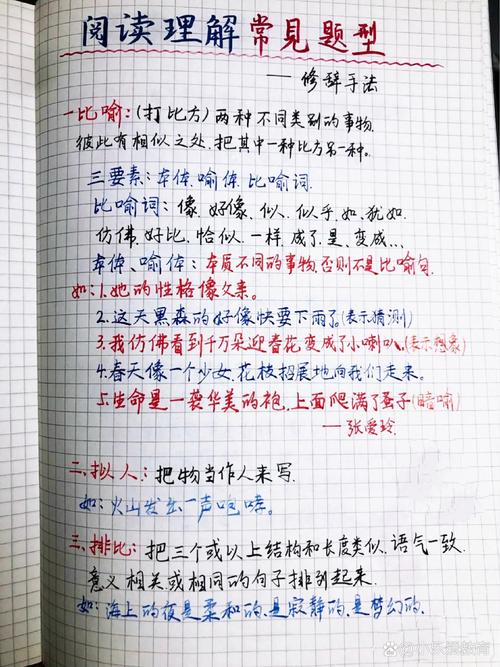 阅读理解常見题型
——修辞手法
一比喻:(打比方)两种不同类别的事物,
彼此有相似之处,把其中一种比方另一种。
三要素:本体.喻体.比喻词.
比喻词:像.好像.似.似乎.如.犹如.
仿佛.好比.恰似.一样.成了.是.变成...
本体、喻体:本质不同的事物,否则不是比喻句.
如:1.她的性格像父亲。
2.这天黑森的好像快要下雨了。(表示猜测)
3.我仿佛看到千万朵迎春花变成了小喇叭。(表示想象)
4.春天像一个少女,花枝招展地向我们走来。
5.生命是一袭华美的袍,上面爬满了蚤子(暗喻)
——张爱玲.
二.拟人:把物当作人来写.
如:火山发出一声咆哮。
三.排比:把三个或以上结构和长度类似.语气一致.
意义相关或相同的句子排列起来.
如:海上的夜是柔和的,是寂静的,是梦幻的.